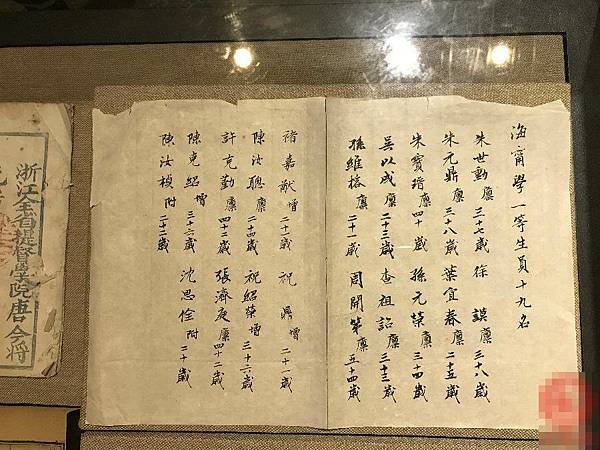 海甯學一等生員十九名
朱世勳 廩 三十七歲 徐 謨 廩 三十八歲
朱元鼎 廩 三十八歲 葉宜春 廩 二十五歲
朱寶瑨 廩 四十歲 孫元榮 廩 三十四歲
吳以成 廩 二十三歲 查祖詒 廩 三十三歲
孫維榕 廩 二十一歲 周開第 廩 五十四歲
褚嘉猷 增 二十七歲 祝 鼎 增 二十一歲
陳汝聰 廩 二十四歲 祝紹榮 增 三十六歲
許克勤 廩 四十二歲 張濟 廩 四十二歲
陳克紹 增 三十六歲 沈思 附 二十歲
陳汝楨 附 二十二歲
浙江全省提督學院唐 今將